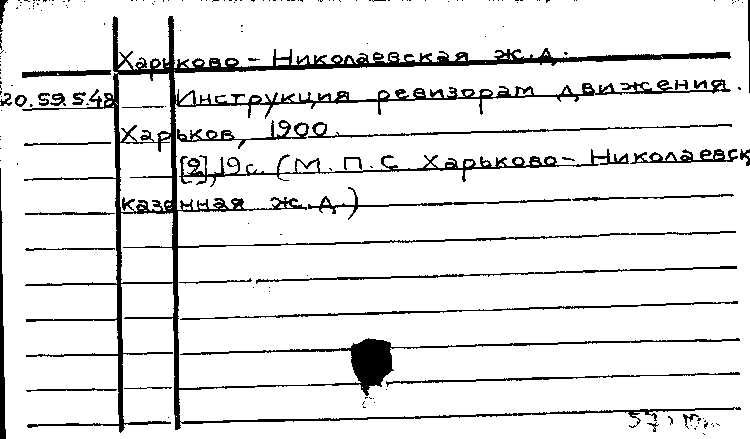 Харьково-Николаевская ж.д.
20.59.5.48 Инструкция ревизорам движения.
Харьков, 1900.
[2], 19с. (М.П.С Харьково-Николаевск
казенная ж.д.)